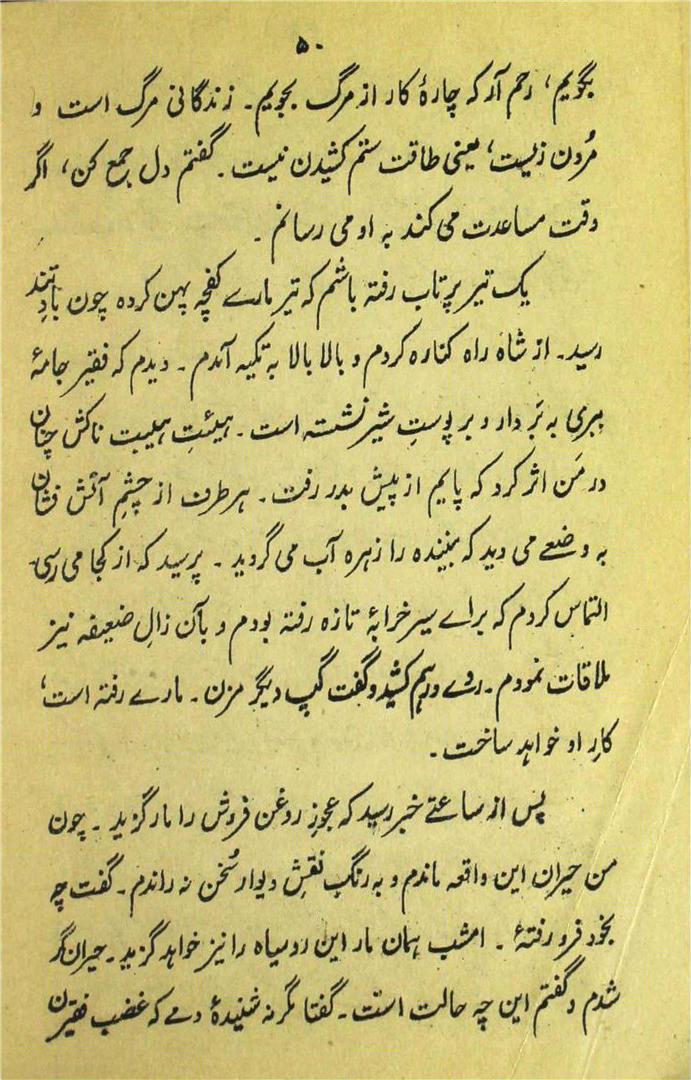 ۵۰
بگویم، رحم آر که چارهٔ کار از مرگ بجویم۔ زندگانی مرگ است و
مُردن زیست، یعنی طاقت ستم کشیدن نیست۔ گفتم دل جمع کن، اگر
وقت مساعدت می کند به او می رسانم۔
یک تیر پرتاب رفته باشم که تیر مارے کفچه پهن کرده چون بادِ تند
رسید۔ از شاه راه کناره کردم و بالا بالا به تکیه آمدم۔ دیدم که فقیر جامهٔ
ببری به بَر دار و بر پوستِ شیر نشسته است۔ هیئتِ هیبت ناکش چنان
در مَن اثر کرد که پایم از پیش بدر رفت۔ هر طرف از چشمِ آتش فشان
به وضعے می دید که بیننده را زهره آب می گردید۔ پرسید که از کجا می رسی۔
التماس کردم که برائے سیر خرابهٔ تازه رفته بودم و با آن زالِ ضعیفه نیز
ملاقات نمودم۔ روے درهم کشید و گفت گپ دیگر مزن۔ مارے رفته است،
کارِ او خواهد ساخت۔
پس از ساعتے خبر رسید که عجوزِ روغن فروش را مار گزید۔ چون
من حیرانِ این واقعه ماندم و به رنگِ نقشِ دیوار سُخن نه راندم۔ گفت چه
بخود فرو رفتهٔ۔ امشب همان مار این روسیاه را نیز خواهد گزید۔ حیران تر
شدم و گفتم این چه حالت است۔ گفتا مگر نه شنیدهٔ دمے که غضب فقیرن